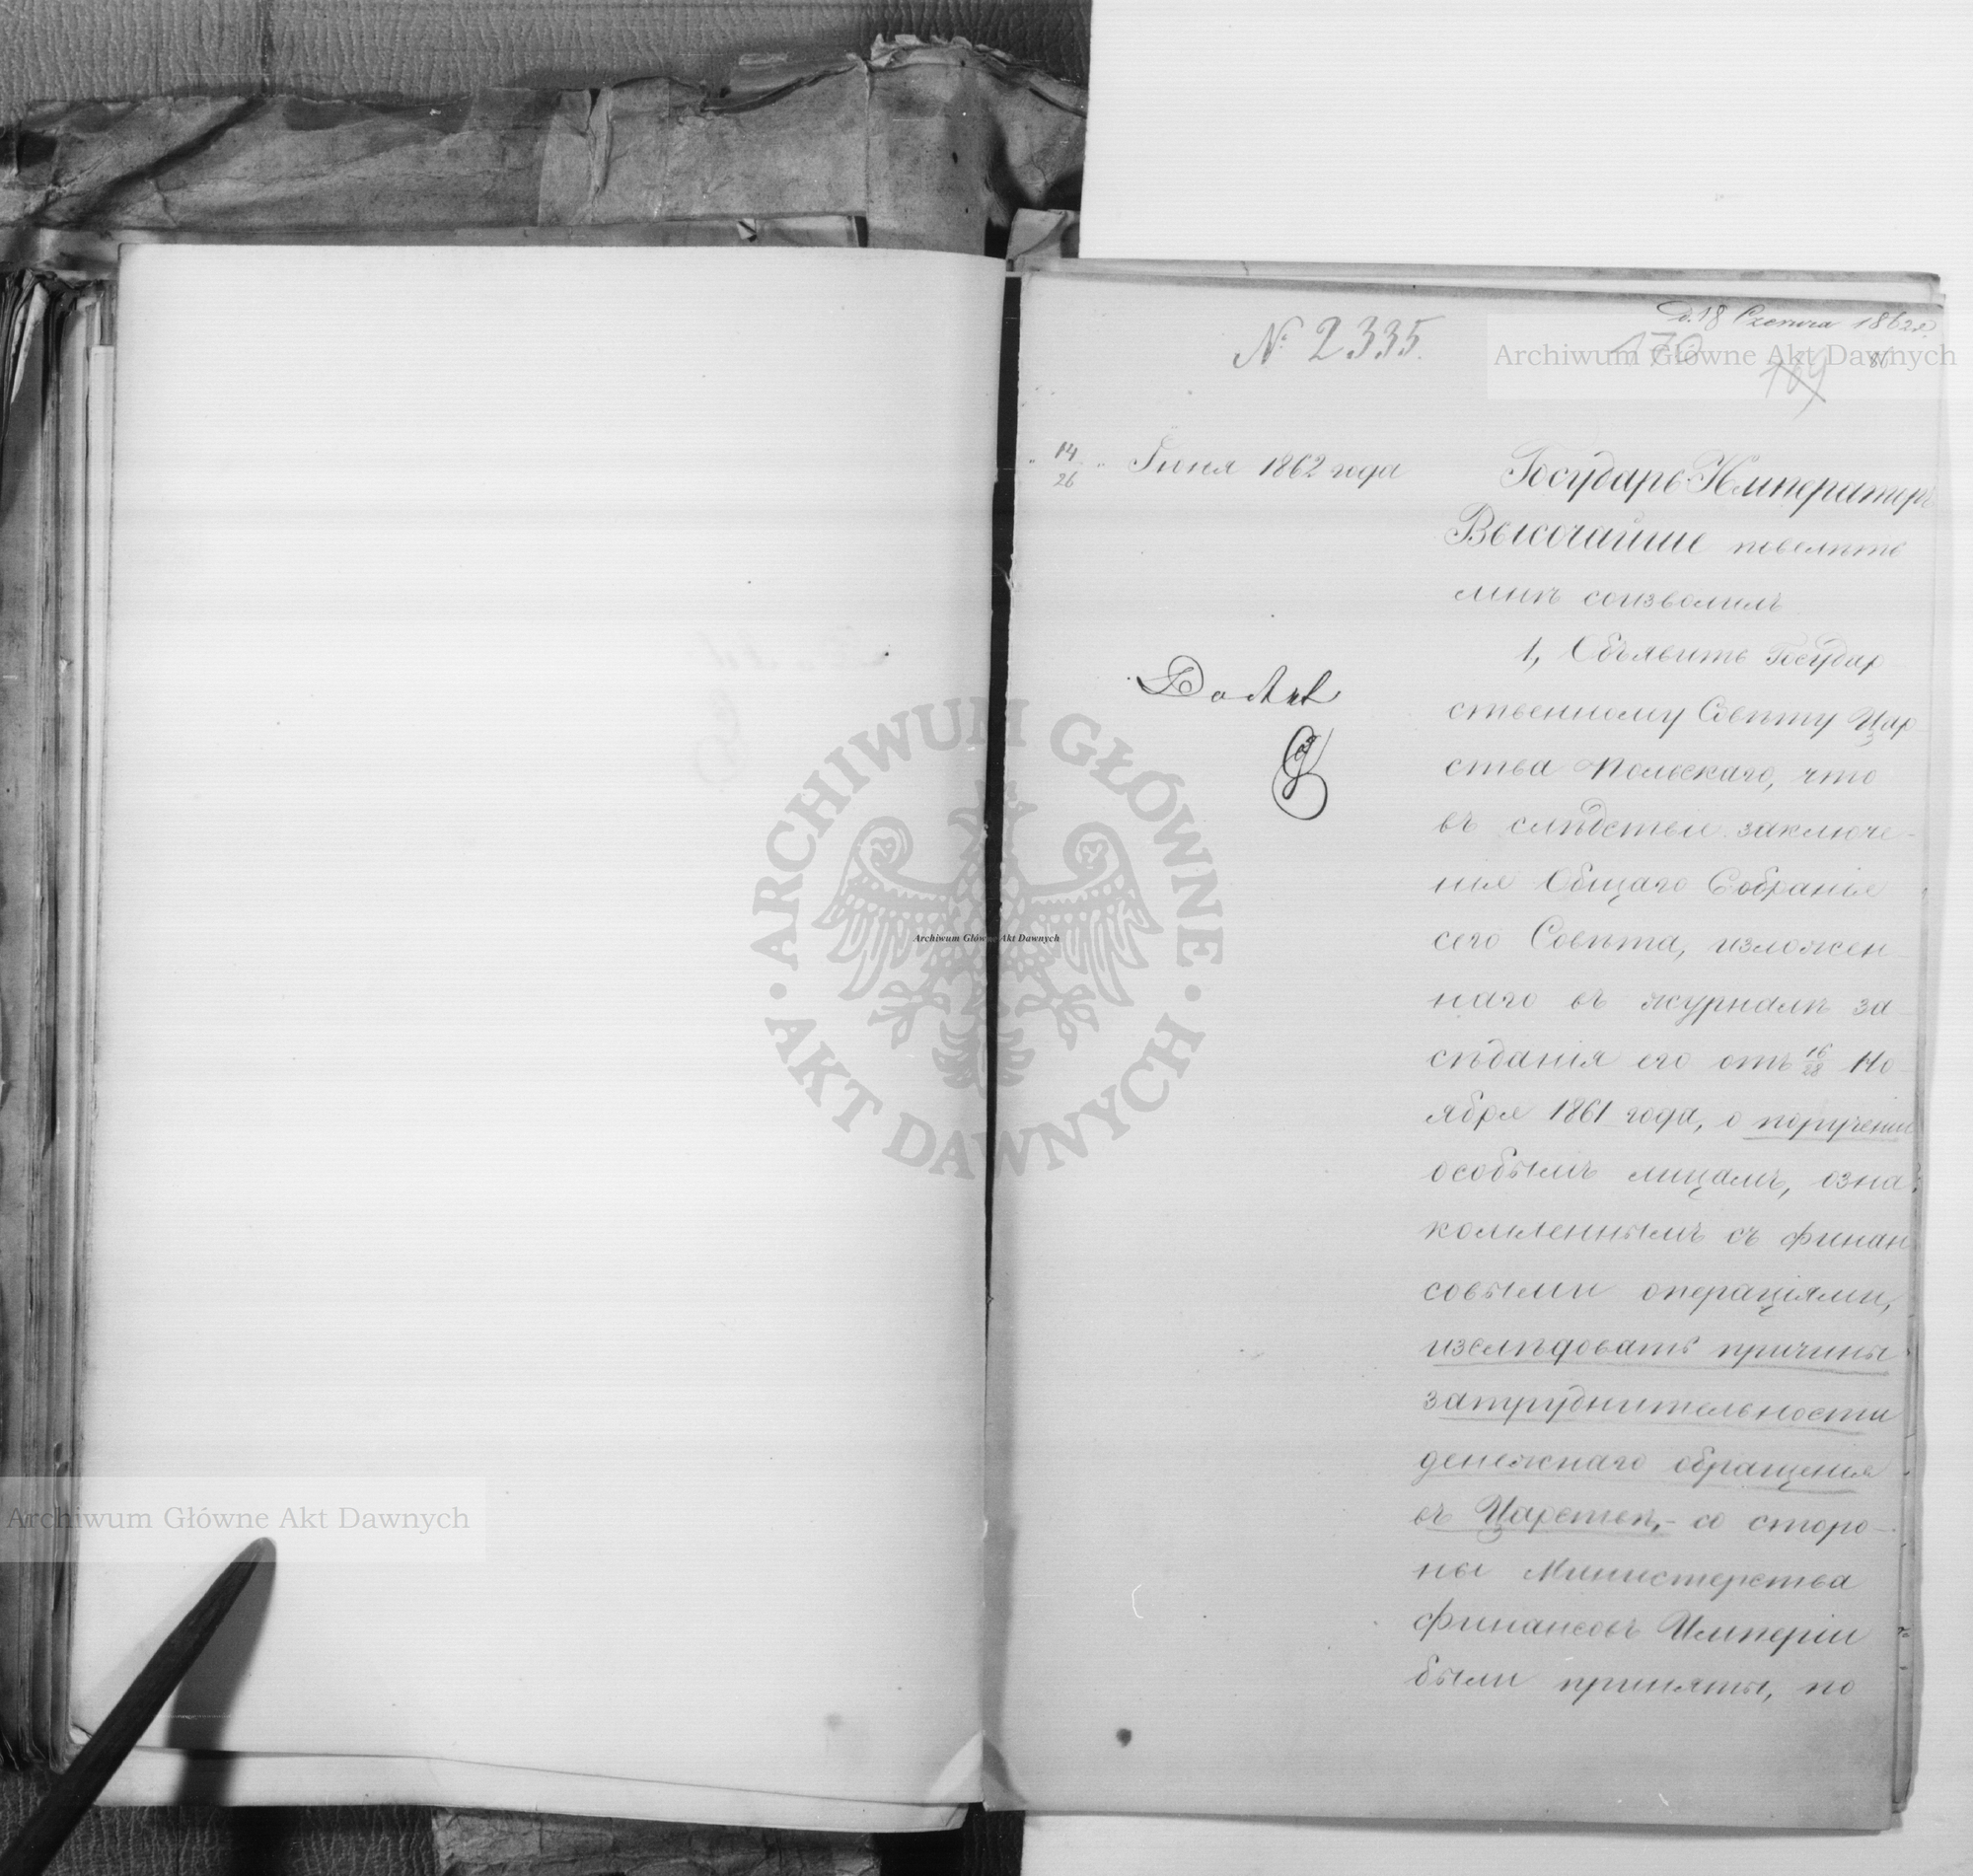 D. 18 Czerwca 1862 r.
№ 2335.
170
169
86
Archiwum Główne Akt Dawnych
14/26 Іюня 1862 года
Государь Императоръ
Высочайше повелѣть
мнѣ соизволилъ
1, Объявить Государ
ственному Совѣту Цар
ства Польскаго, что
въ слѣдствіе заключе-
нія Общаго Собранія
сего Совѣта, изложен-
наго въ журналѣ за-
сѣданія его отъ 16/28 Но-
ября 1861 года, о порученіи
особымъ лицамъ, озна-
комленнымъ съ финан
совыми операціями,
изслѣдовать причины
затруднительности
денежнаго обращенія
въ Царствѣ,- со сторо-
ны Министерства
Финансовъ Имперіи
были приняты, по
Do Akt
ARCHIWUM GŁÓWNE
AKT DAWNYCH
Archiwum Główne Akt Dawnych
Archiwum Główne Akt Dawnych